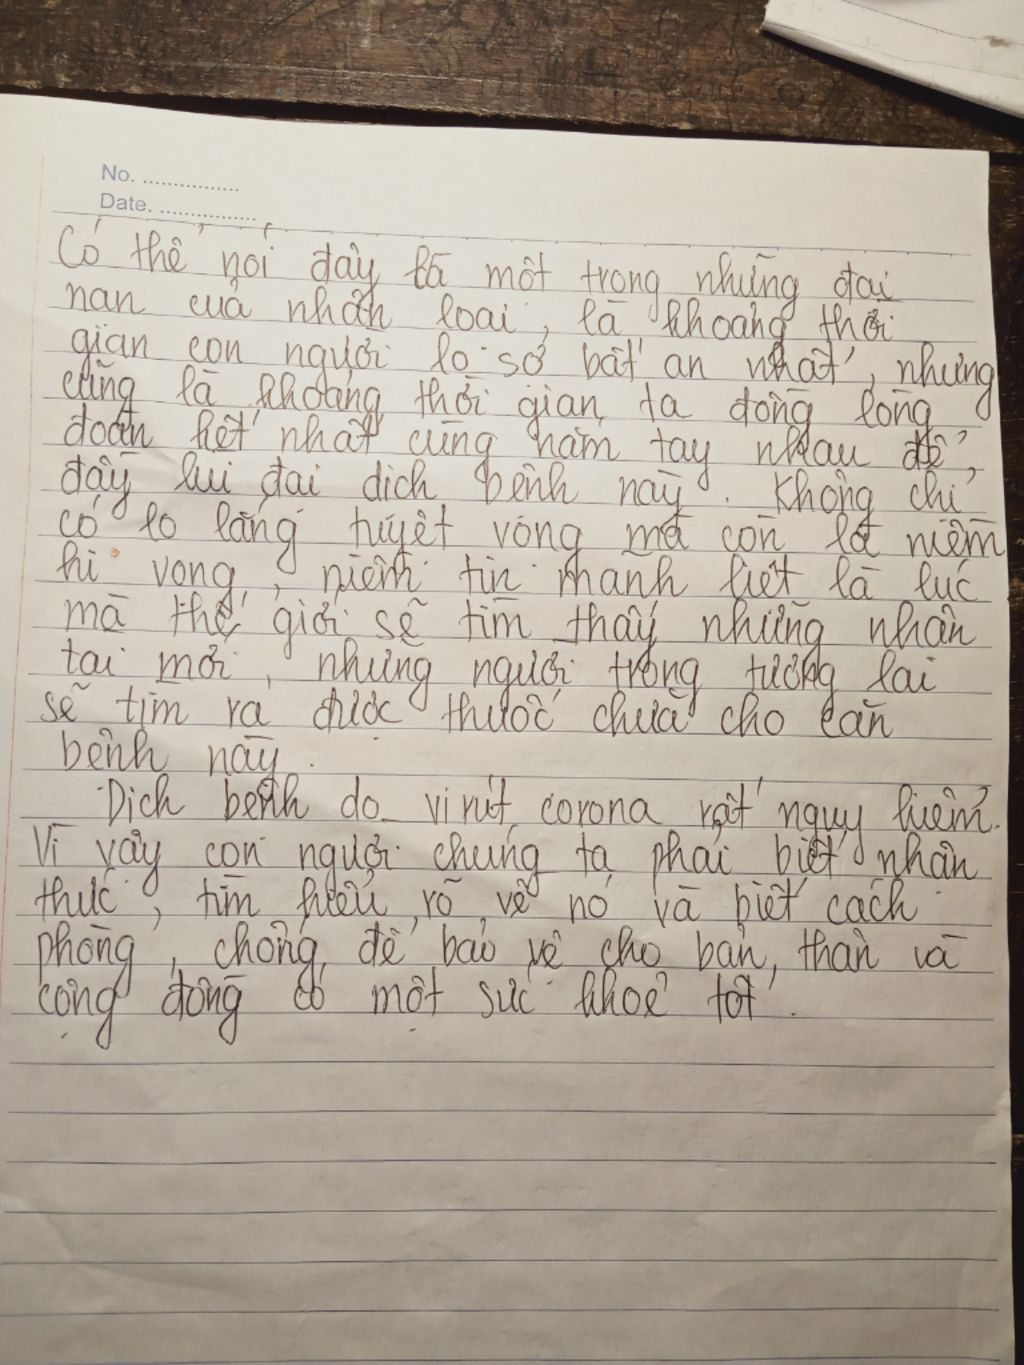 No. ................
Date. ................
Có thể nói đây là một trong những đại
nạn của nhân loại, là khoảng thời
gian con người lo sợ bất an nhất, nhưng
cũng là khoảng thời gian ta đồng lòng
đoàn kết nhất cùng nắm tay nhau để
đẩy lui đại dịch bệnh này. Không chỉ
có lo lắng tuyệt vọng mà còn là niềm
hi vọng, niềm tin mãnh liệt là lúc
mà thế giới sẽ tìm thấy những nhân
tài mới, những người trong tương lai
sẽ tìm ra được thuốc chữa cho căn
bệnh này.
Dịch bệnh do vi rút corona rất nguy hiểm.
Vì vậy con người chúng ta phải biết nhận
thức, tìm hiểu rõ về nó và biết cách
phòng, chống để bảo vệ cho bản thân và
cộng đồng có một sức khoẻ tốt.